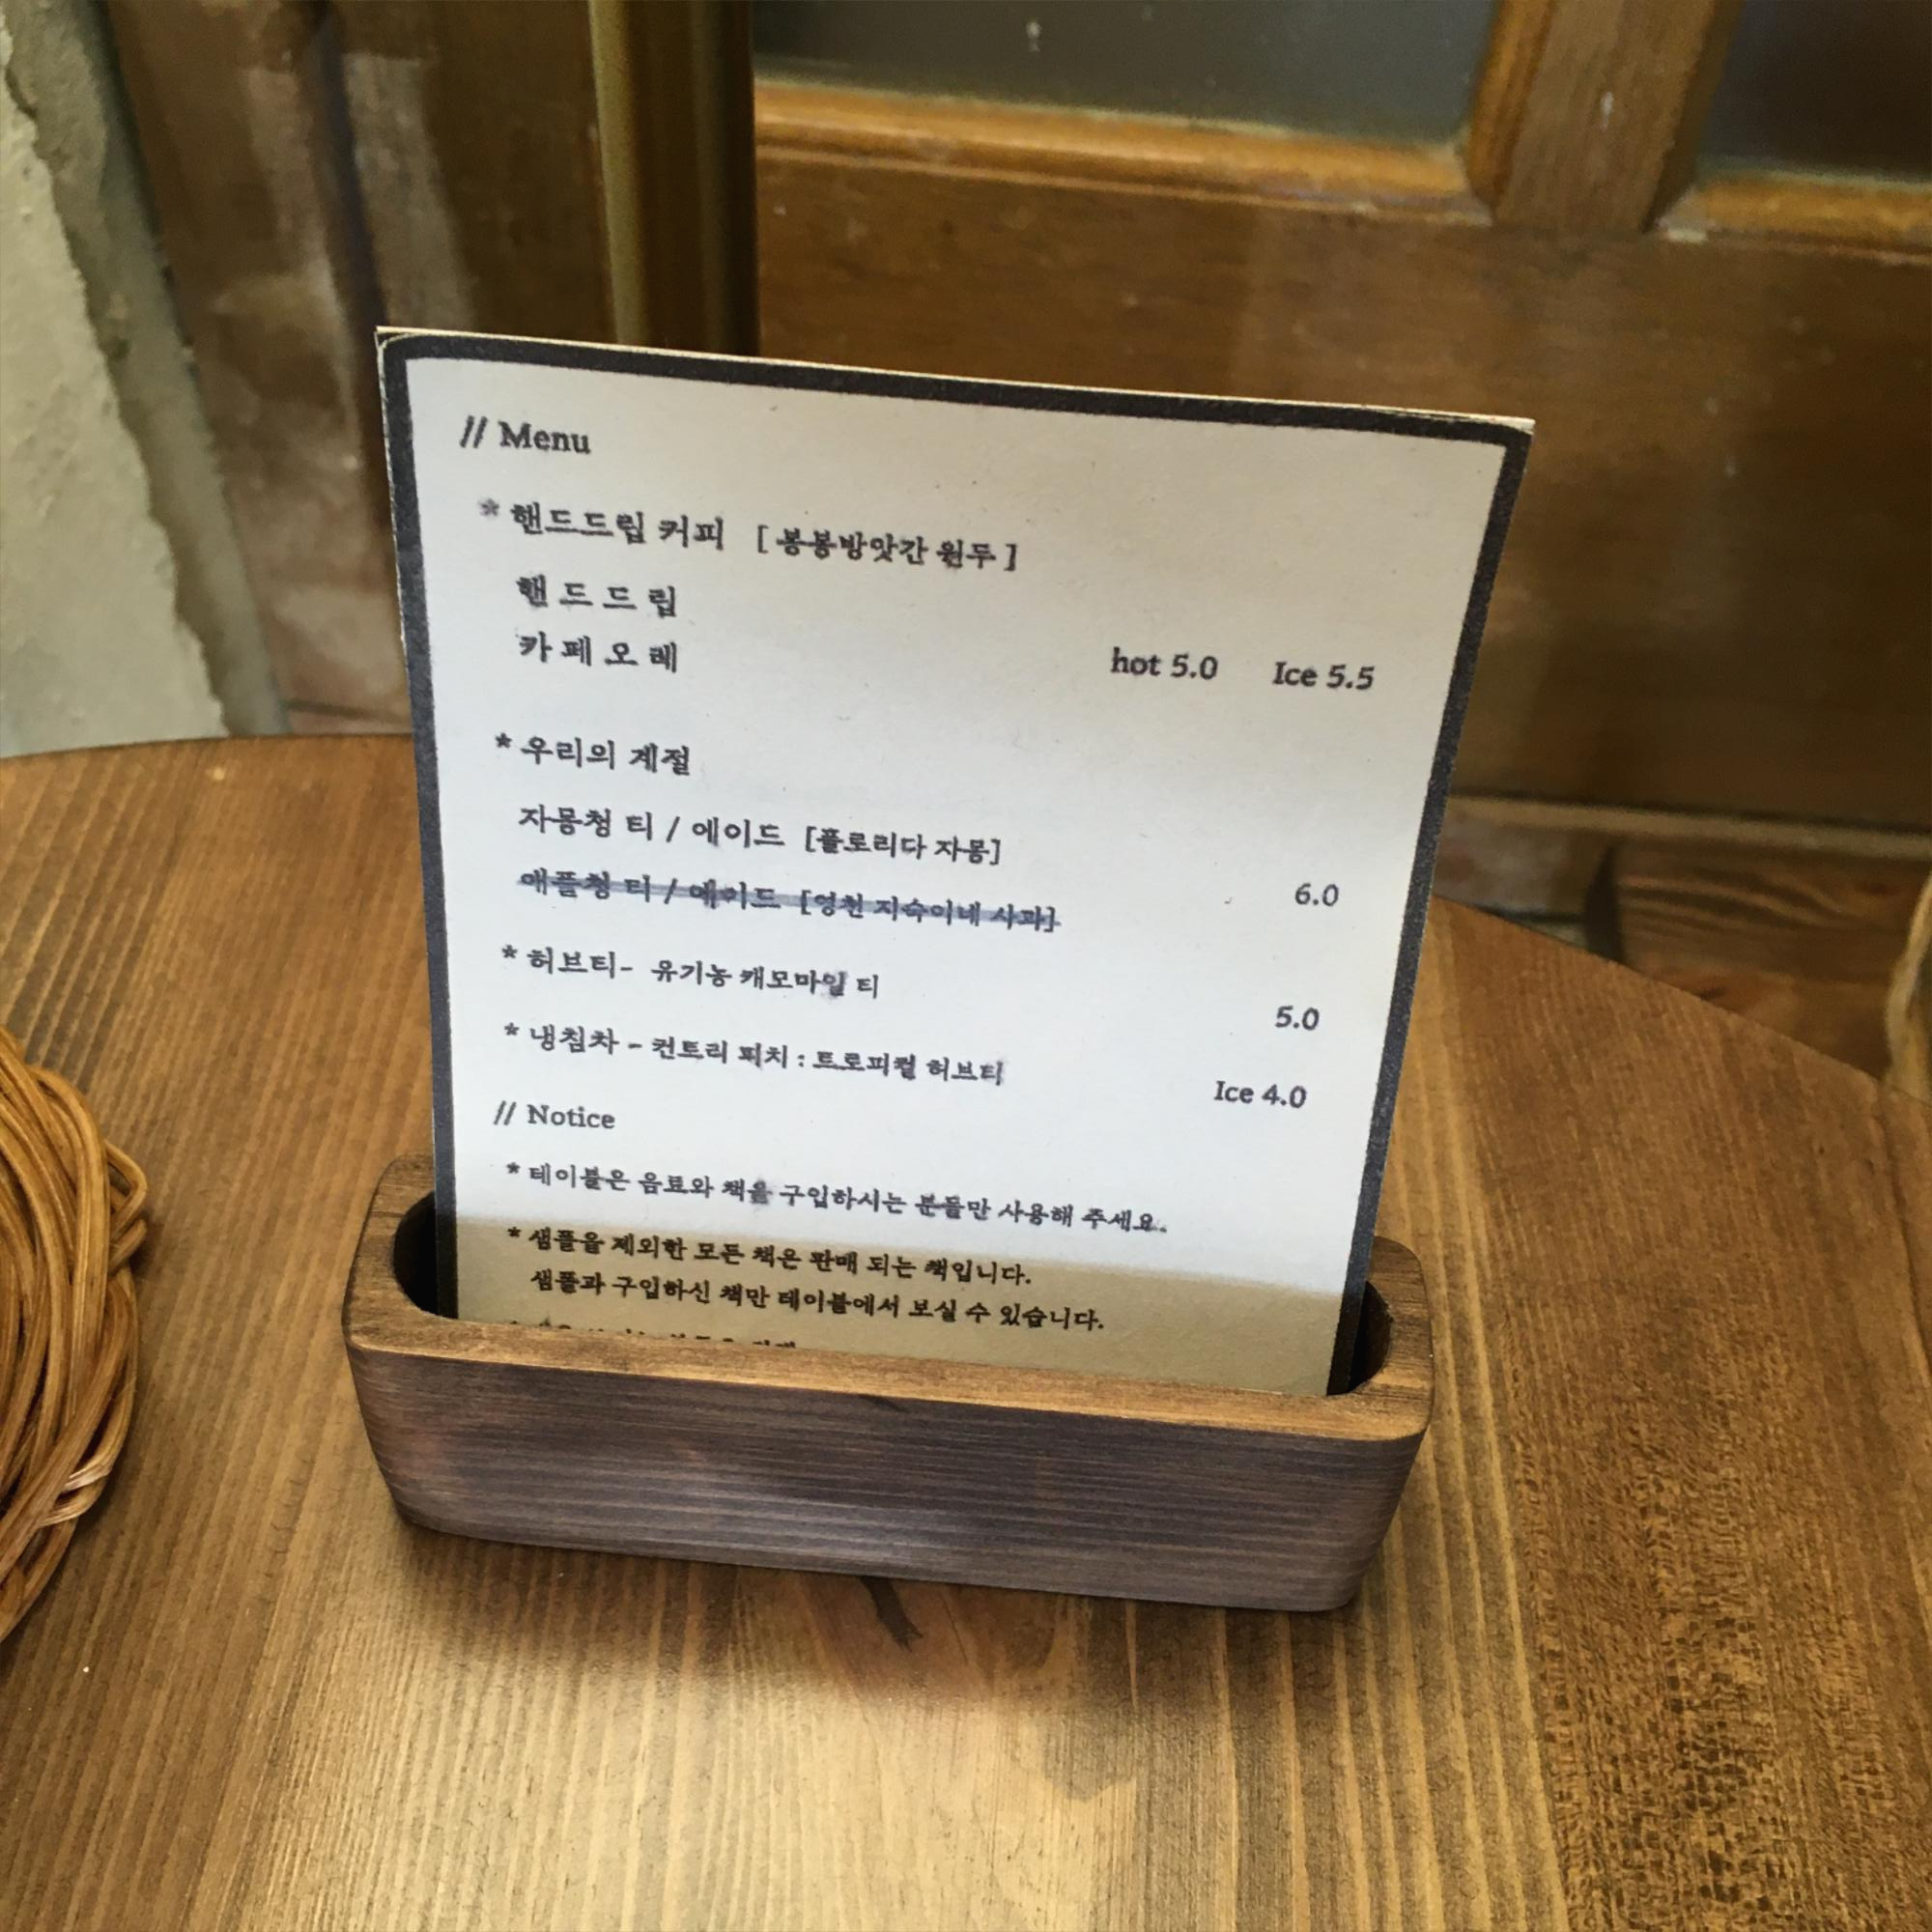 // Menu
* 핸드드립 커피 [ 봉봉방앗간 원두 ]
핸 드 드 립
카 페 오 레 hot 5.0 Ice 5.5
* 우리의 계절
자몽청 티 / 에이드 [플로리다 자몽] 6.0
애플청 티 / 에이드 [영천 지숙이네 사과]
* 허브티- 유기농 캐모마일 티 5.0
* 냉침차 - 컨트리 피치 : 트로피컬 허브티 Ice 4.0
// Notice
* 테이블은 음료와 책을 구입하시는 분들만 사용해 주세요.
* 샘플을 제외한 모든 책은 판매 되는 책입니다.
샘플과 구입하신 책만 테이블에서 보실 수 있습니다.